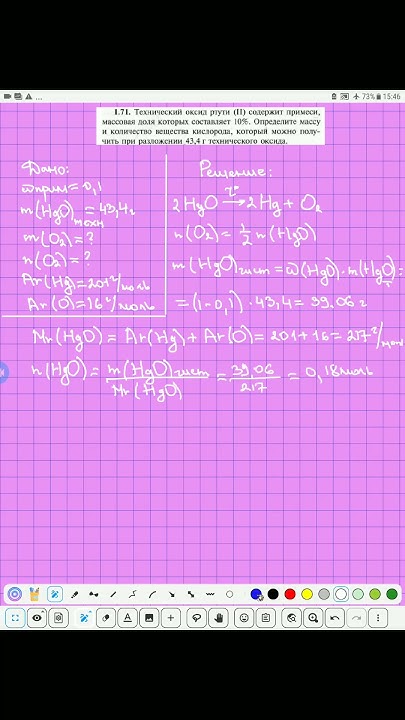 73% 15:46
1.71. Технический оксид ртути (II) содержит примеси,
массовая доля которых составляет 10%. Определите массу
и количество вещества кислорода, который можно полу-
чить при разложении 43,4 г технического оксида.
Дано:
ωприм = 0,1
m(HgO)техн = 43,4г
m(O₂) = ?
n(O₂) = ?
Ar(Hg) = 201 г/моль
Ar(O) = 16 г/моль
Решение:
2HgO →t° 2Hg + O₂
n(O₂) = 1/2 n(HgO)
m(HgO)чист = ω(HgO) · m(HgO) =
= (1-0,1) · 43,4 = 39.06 г
Mr(HgO) = Ar(Hg) + Ar(O) = 201 + 16 = 217 г/моль
n(HgO) = m(HgO)чист / Mr(HgO) = 39,06 / 217 = 0,18 моль
A